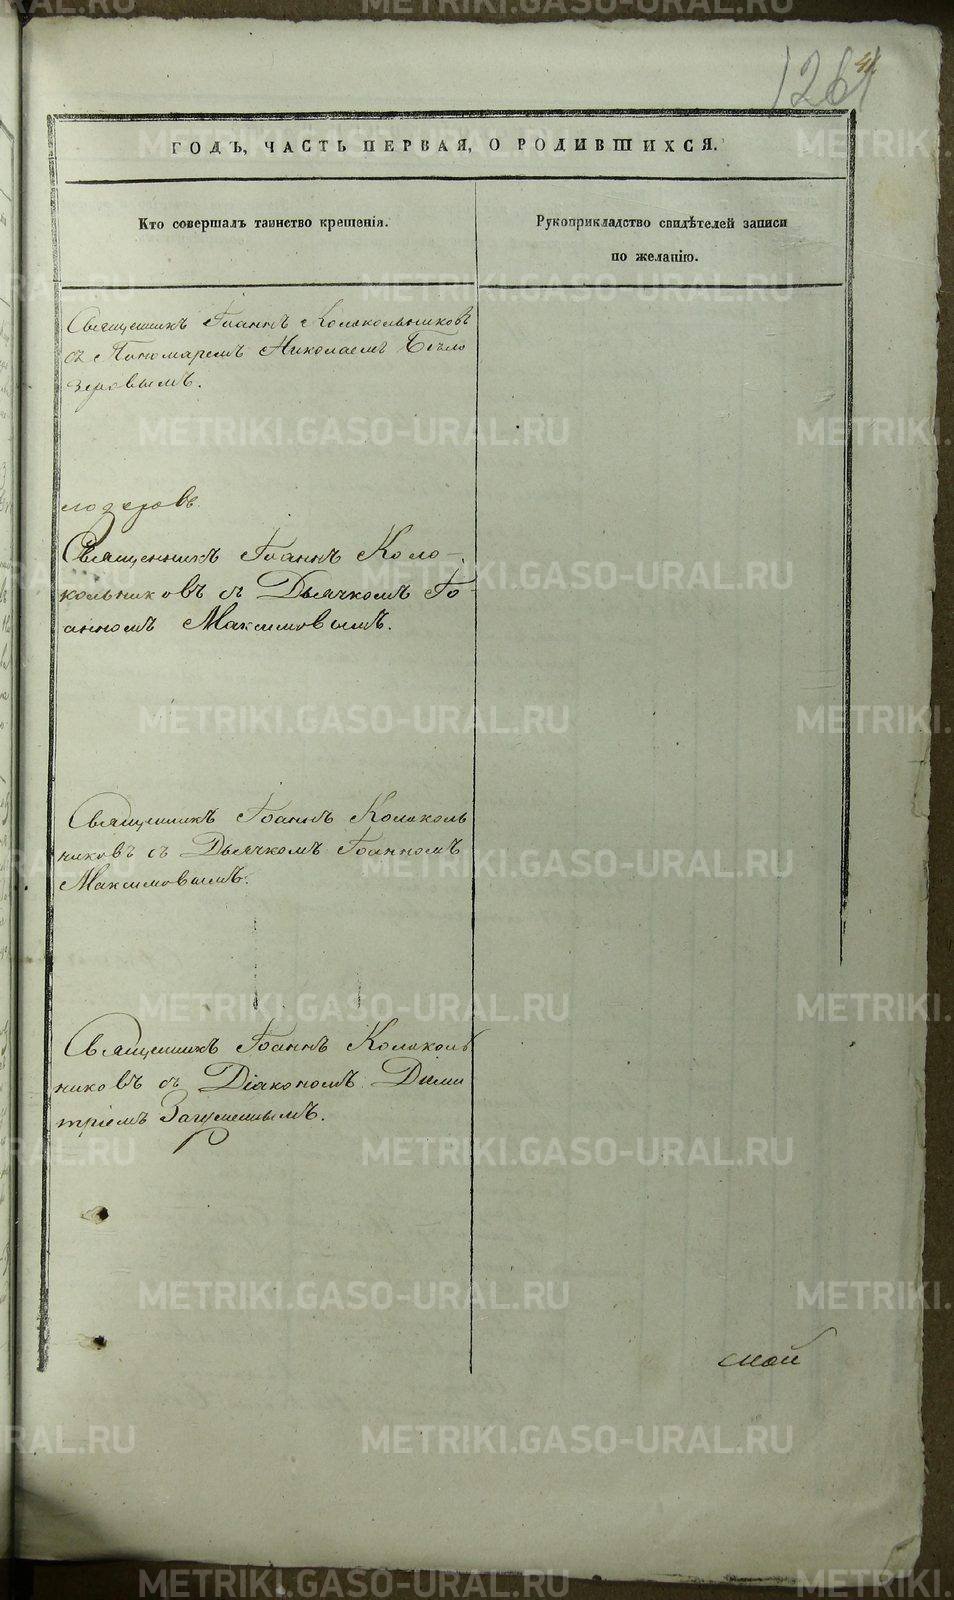 126
41.
ГОДЪ, ЧАСТЬ ПЕРВАЯ, О РОДИВШИХСЯ.
Кто совершалъ таинство крещенія.
Рукоприкладство свидѣтелей записи
по желанію.
Священникъ Іоаннъ Колокольниковъ
съ Пономаремъ Николаемъ Бѣло
зеровымъ.
лозеровъ.
Священникъ Іоаннъ Коло-
кольниковъ съ Дьячкомъ Іо-
анномъ Максимовымъ.
Священникъ Іоаннъ Колоколь
никовъ съ Дьячкомъ Іоанномъ
Максимовымъ.
Священникъ Іоаннъ Колоколь
никовъ съ Діакономъ Дими
тріемъ
смой
METRIKI.GASO-URAL.RU